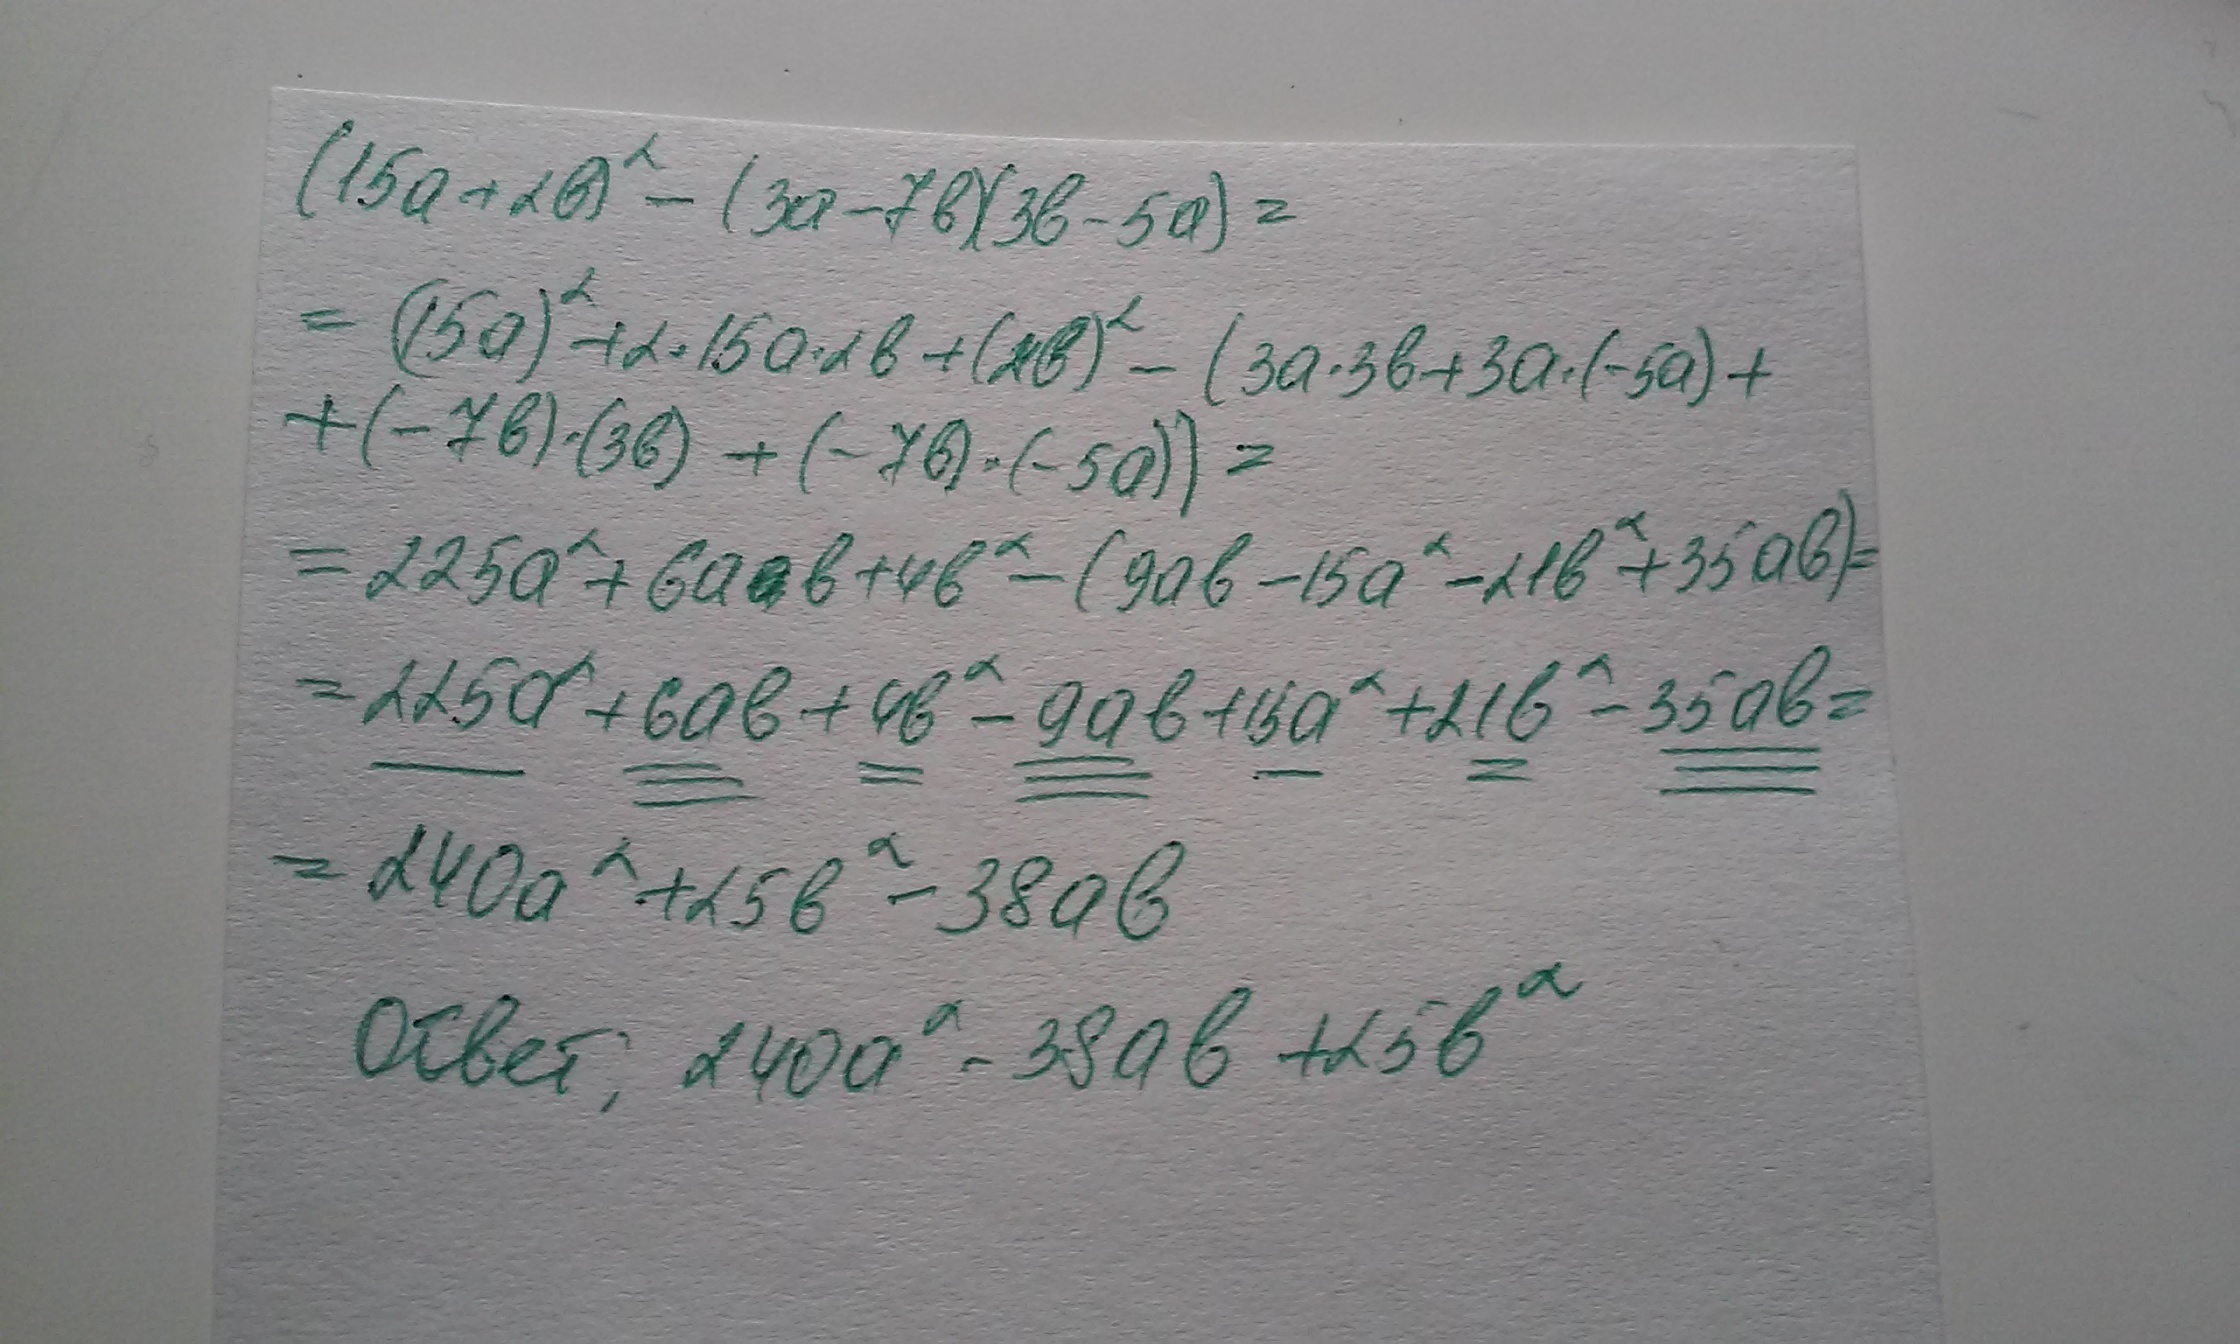 (15a+2b)² - (3a-7b)(3b-5a) =
= (15a)² + 2·15a·2b + (2b)² - (3a·3b + 3a·(-5a) +
+ (-7b)·(3b) + (-7b)·(-5a)) =
= 225a² + 6ab + 4b² - (9ab - 15a² - 21b² + 35ab) =
= 225a² + 6ab + 4b² - 9ab + 15a² + 21b² - 35ab =
= 240a² + 25b² - 38ab
Ответ; 240a² - 38ab + 25b²